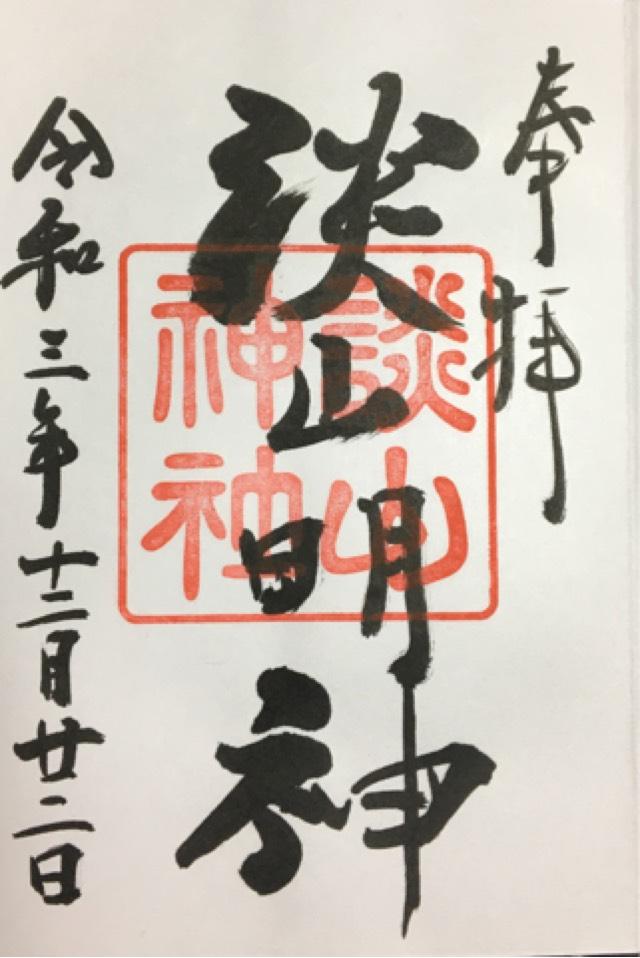 奉拝
談山明神
談山神社
令和三年十二月廿二日